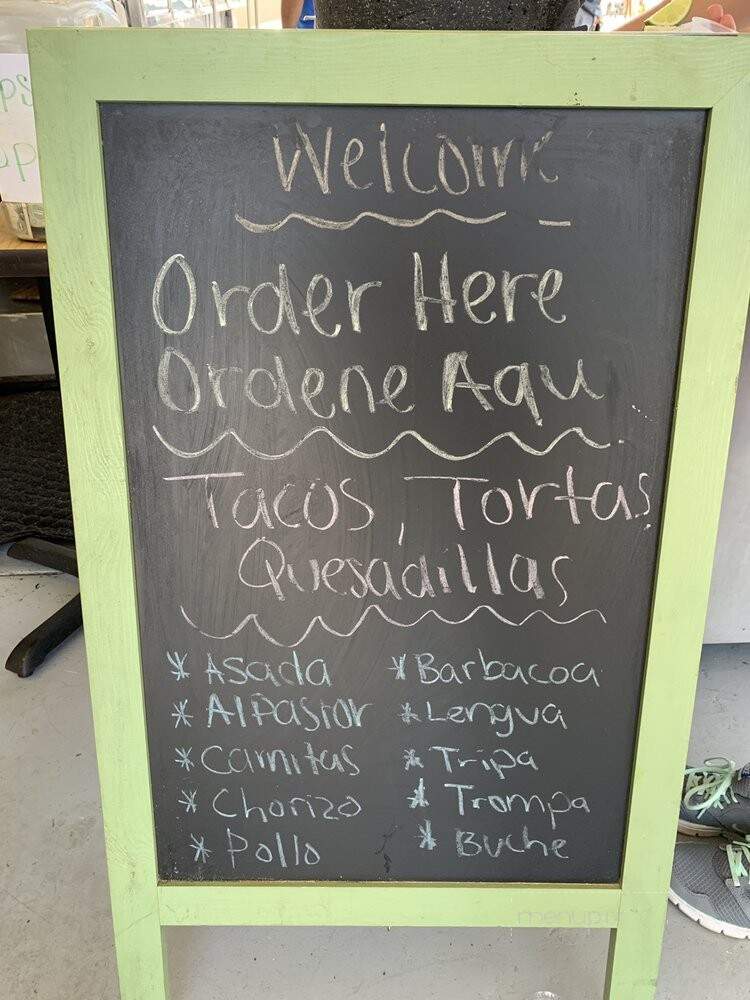 ps
up
Welcome
Order Here
Ordene Aqu
Tacos, Tortas
Quesadillas
* Asada * Barbacoa
* Al Pastor * Lengua
* Carnitas * Tripa
* Chorizo * Trompa
* Pollo * Buche
menupix